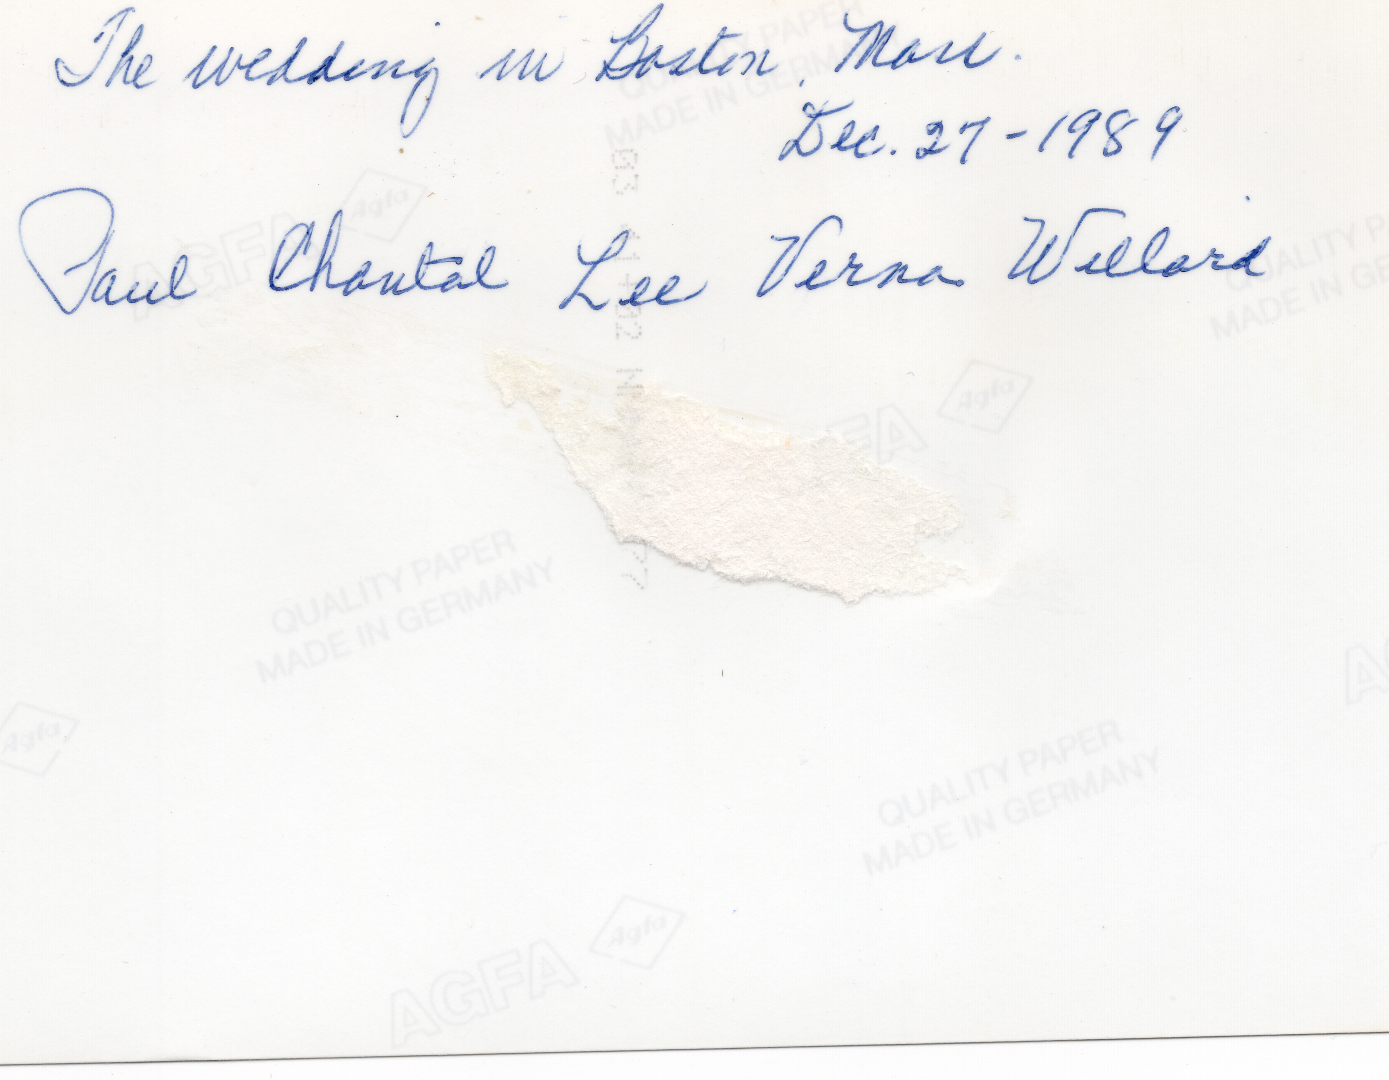 The wedding in Boston, Mass.
Dec. 27-1989
Paul Chantal Lee Verna Willard
QUALITY PAPER
MADE IN GERMANY
AGFA Agfa
QUALITY P
MADE IN GE
FA Agfa
QUALITY PAPER
MADE IN GERMANY
Agfa
A
QUALITY PAPER
MADE IN GERMANY
AGFA Agfa